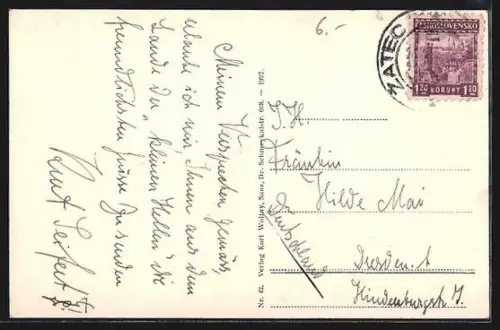 6.-
Meinem Versprechen gemäss,
erlaube ich mir, Ihnen aus dem
Lande der „kleinen Hellen“ die
freundlichsten Grüsse zu senden
Kurt Seifert
Nr. 42. Verlag Karl Wolfny, Saaz, Dr. Schmeykalstr. 608. — 1927.
ŽATEC
ČESKOSLOVENSKO
1.20 KORUNY 1.20
I.H.
Fräulein
Hilde Mai
Dresden. A
Hindenburgstr. 7.
Deutschland